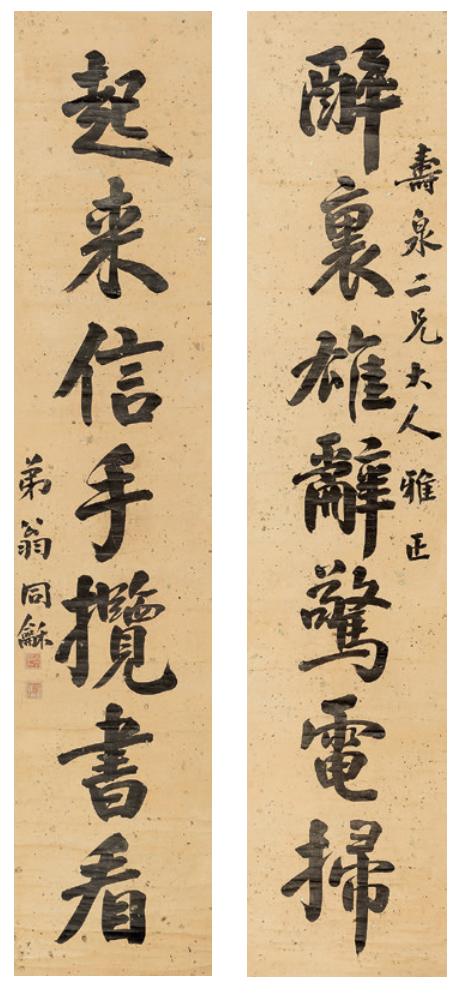 醉裏雄辭驚電掃
壽泉二兄大人雅正
起来信手攬書看
弟翁同龢